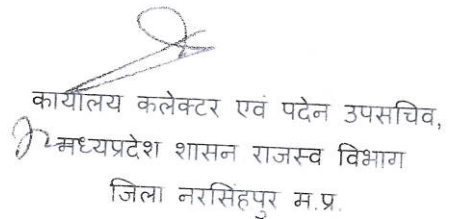 कार्यालय कलेक्टर एवं पदेन उपसचिव,
मध्यप्रदेश शासन राजस्व विभाग
जिला नरसिंहपुर म.प्र.